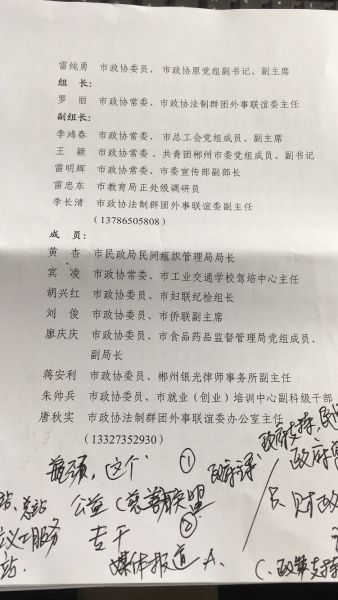 雷纯勇 市政协委员、市政协原党组副书记、副主席
组 长：
罗 丽 市政协常委、市政协法制群团外事联谊委主任
副组长：
李鸿春 市政协常委、市总工会党组成员、副主席
王 颖 市政协常委、共青团郴州市委党组成员、副书记
雷明辉 市政协常委、市委宣传部副部长
雷忠东 市教育局正处级调研员
李长清 市政协法制群团外事联谊委副主任
(13786505808)
成 员：
黄 杏 市民政局民间组织管理局局长
宾 凌 市政协常委、市工业交通学校驾培中心主任
胡兴红 市政协委员、市妇联纪检组长
刘 俊 市政协委员、市侨联副主席
廖庆庆 市政协委员、市食品药品监督管理局党组成员、
副局长
蒋安利 市政协委员、郴州银光律师事务所副主任
朱帅兵 市政协委员、市就业（创业）培训中心副科级干部
唐秋实 市政协法制群团外事联谊委办公室主任
(13327352930)
这个 ①
公益（慈善联盟
②
服务 专干
站. 媒体报道 A.
财政
C.政策支持